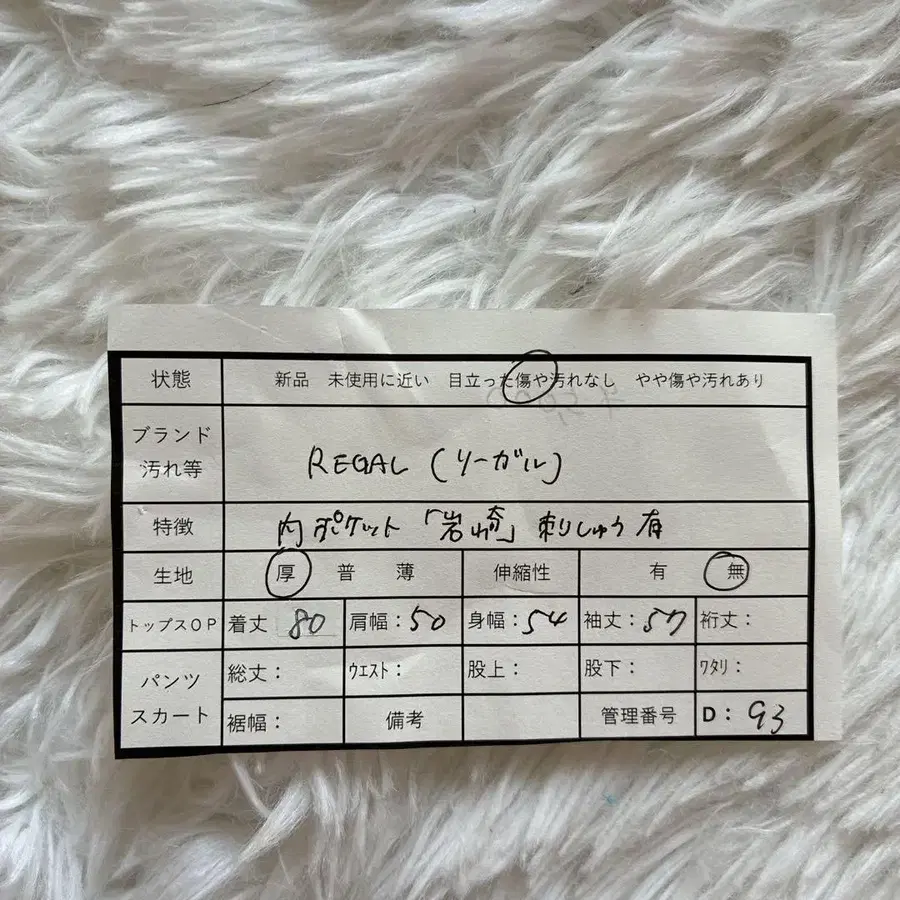 状態 新品 未使用に近い 目立った傷や汚れなし やや傷や汚れあり
ブランド
汚れ等
REGAL (リーガル)
特徴 内ポケット「岩崎」刺しゅう有
生地 厚 普 薄 伸縮性 有 無
トップスOP 着丈 80 肩幅:50 身幅:54 袖丈:57 裄丈:
パンツ
スカート
総丈: ウエスト: 股上: 股下: ワタリ:
裾幅: 備考 管理番号 D:93